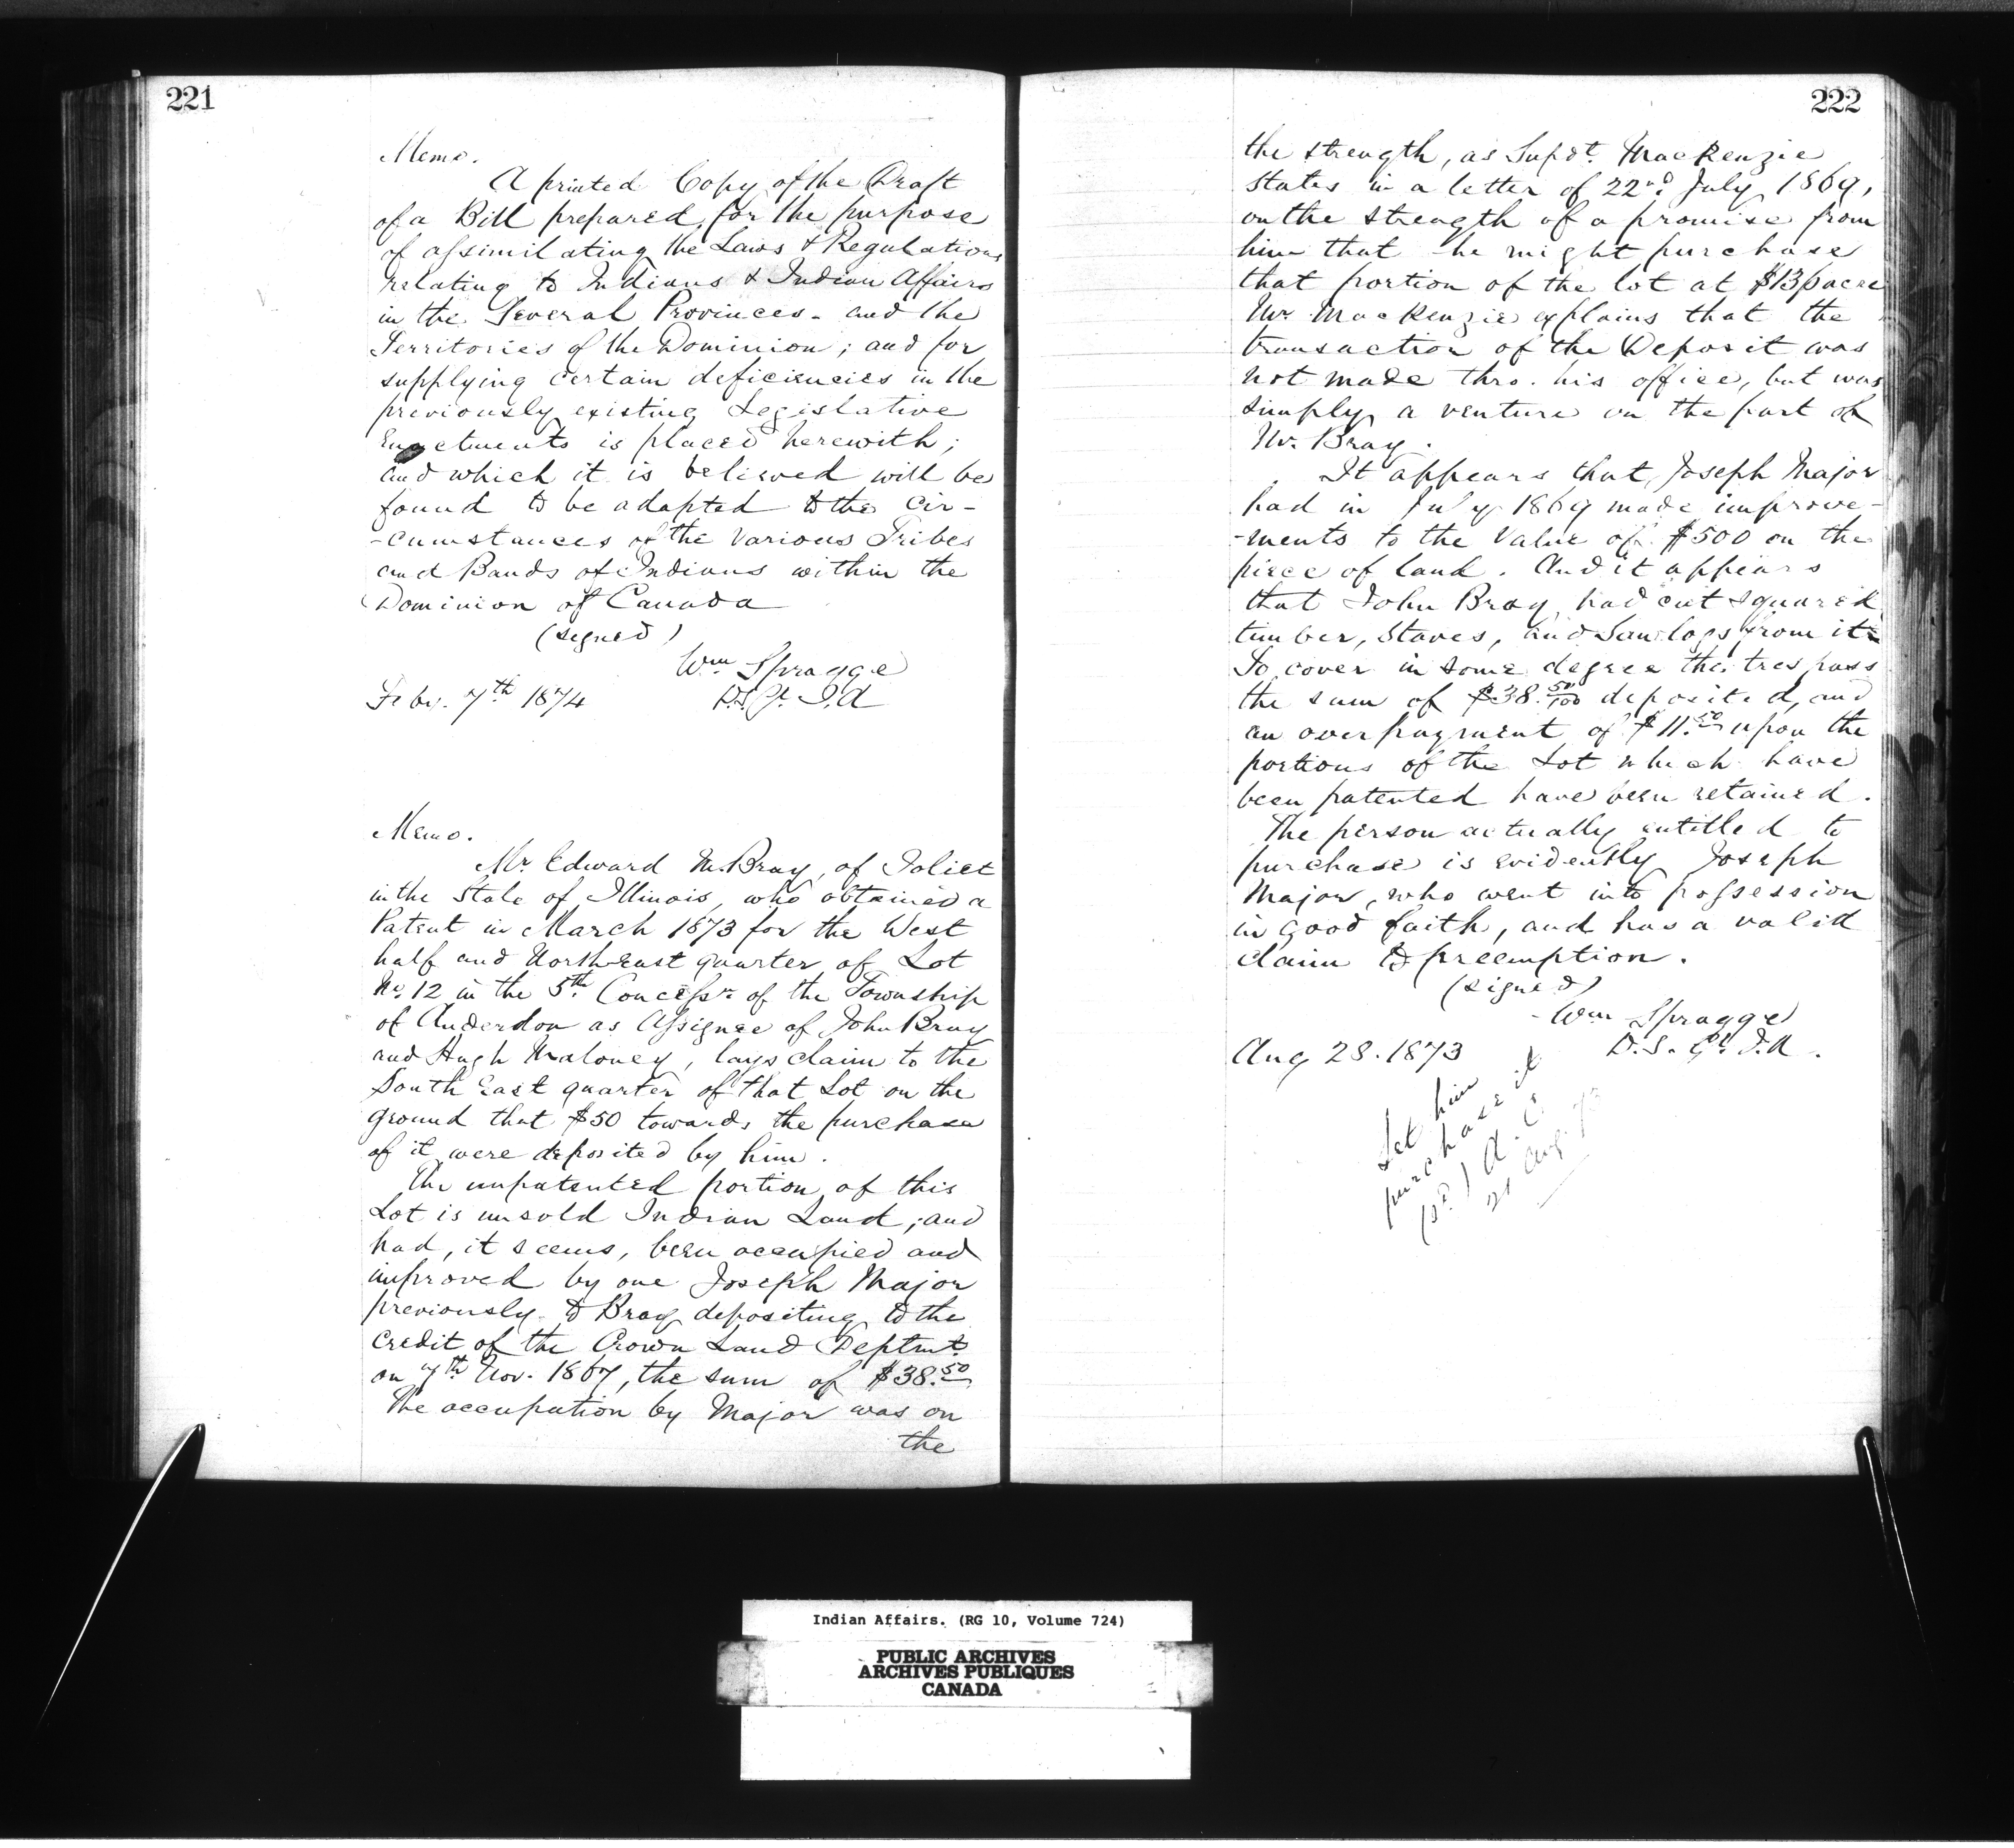 221
Memo.
A printed Copy of the Draft
of a Bill prepared for the purpose
of assimilating the Laws & Regulations
relating to Indians & Indian Affairs
in the Several Provinces - and the
Territories of the Dominion; and for
supplying certain deficiencies in the
previously existing Legislative
Enactments is placed herewith;
and which it is believed will be
found to be adapted to the Cir-
-cumstances of the various Tribes
and Bands of Indians within the
Dominion of Canada
(signed)
Wm Spragge
D.S.Gl. I.A
Feby. 7th 1874
Memo.
Mr. Edward M. Bray, of Joliet
in the State of Illinois, who obtained a
Patent in March 1873 for the West
half and North-East quarter of Lot
No. 12 in the 5th Concessn of the Township
of Anderdon as Assignee of John Bray
and Hugh Maloney, lays claim to the
South East quarter of that Lot on the
ground that $50 towards the purchase
of it were deposited by him.
The unpatented portion of this
Lot is unsold Indian Land; and
had, it seems, been occupied and
improved by one Joseph Major
previously to Bray depositing to the
credit of the Crown Land Deptmt
on 7th Nov. 1867, the sum of $38.50
The occupation by Major was on
the
222
the strength, as Supdt. MacKenzie
states in a letter of 22nd July 1869,
on the strength of a promise from
him that he might purchase
that portion of the lot at $13 p acre
Mr. MacKenzie explains that the
transaction of the Deposit was
not made thro. his office, but was
simply a venture on the part of
Mr. Bray.
It appears that Joseph Major
had in July 1869 made improve-
-ments to the Value of $500 on the
piece of land. And it appears
that John Bray had cut squared
timber, Staves, and Saw logs from it.
To cover in some degree the trespass
the sum of $38.50/100 deposited, and
an overpayment of $11.50 upon the
portions of the Lot which have
been patented have been retained.
The person actually entitled to
purchase is evidently Joseph
Major, who went into possession
in good faith, and has a valid
claim to preemption.
(signed)
Wm Spragge
D.S. Gl. I.A.
Aug 28. 1873
Let him
purchase it
(sd) A. C
Aug. 73
Indian Affairs. (RG 10, Volume 724)
PUBLIC ARCHIVES
ARCHIVES PUBLIQUES
CANADA